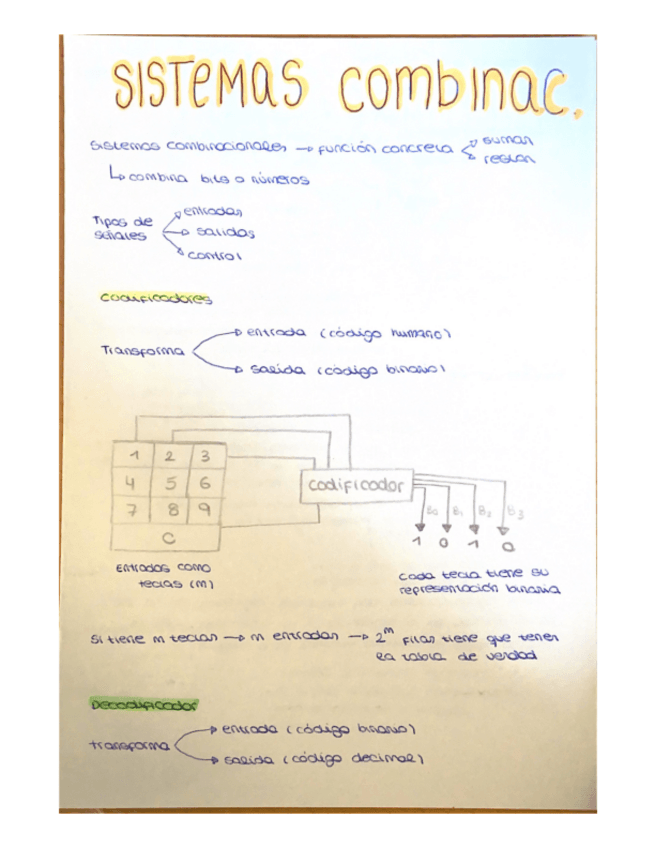 SISTEMAS COMBINAC.
Sistemas combinacionales → función concreta
suman
restan
↳ combina bits o números
Tipos de señales
entradas
salidas
control
Codificadores
Transforma
entrada (código humano)
salida (código binario)
1 2 3
4 5 6
7 8 9
C
codificador
B0 B1 B2 B3
1 0 1 0
Entradas como
teclas (m)
Cada tecla tiene su
representación binaria
Si tiene m teclas → m entradas → 2^m filas tiene que tener
la tabla de verdad
Decodificador
transforma
entrada (código binario)
salida (código decimal)